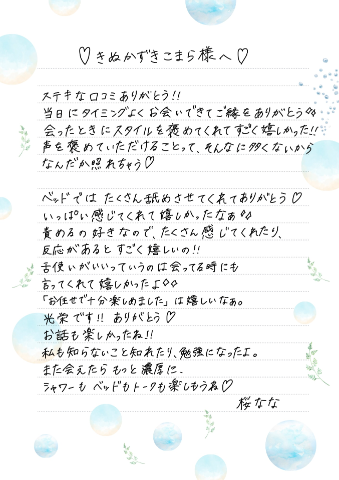 ♡きぬかずきこまら様へ♡
ステキな口コミありがとう!!
当日にタイミングよくお会いできてご縁をありがとう♪♪
会ったときにスタイルを褒めてくれてすごく嬉しかった!!
声を褒めていただけることって、そんなに多くないから
なんだか照れちゃう♡
ベッドではたくさん舐めさせてくれてありがとう♡
いっぱい感じてくれて嬉しかったなぁ♪♪
責めるの好きなので、たくさん感じてくれたり、
反応があるとすごく嬉しいの!!
舌使いがいいっていうのは会ってる時にも
言ってくれて嬉しかったよ♪♪
「お任せで十分楽しめました」は嬉しいなぁ。
光栄です!! ありがとう♡
お話も楽しかったね!!
私も知らないこと知れたり、勉強になったよ。
また会えたらもっと濃厚に、
シャワーもベッドもトークも楽しもうね♡
桜なな